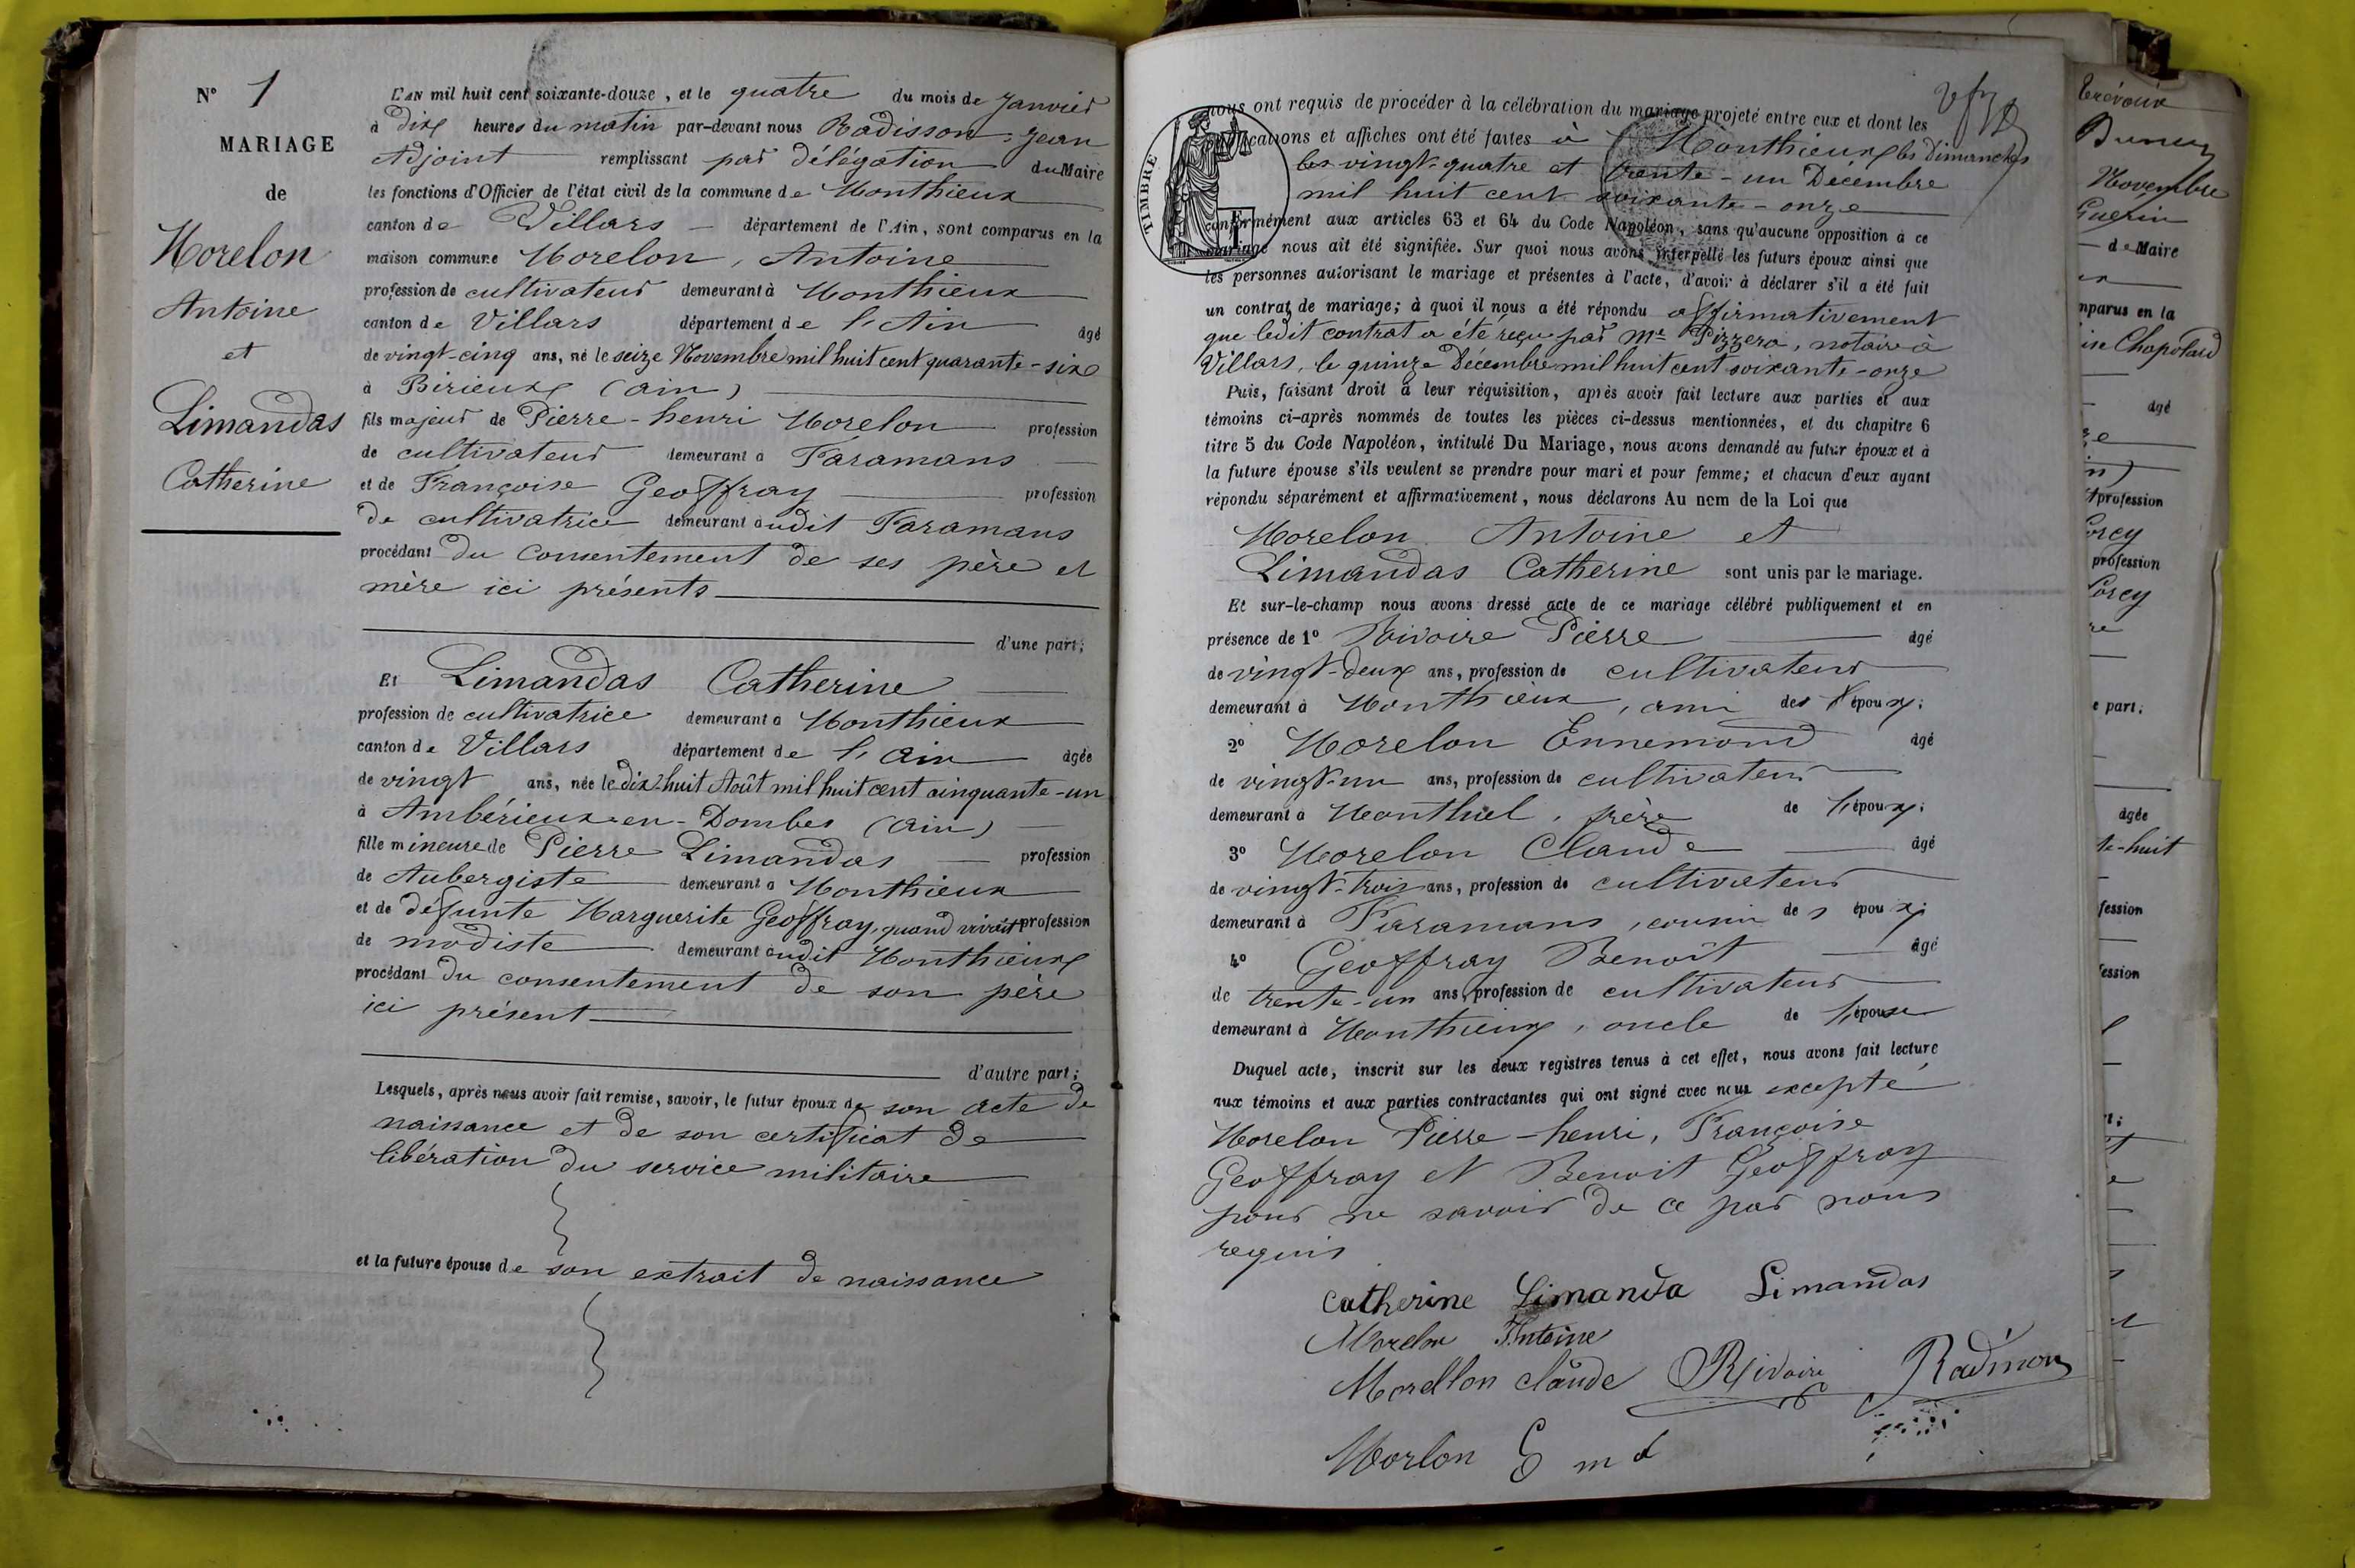 N° 1
MARIAGE
de
Morelon
Antoine
et
Limandas
Catherine
L'AN mil huit cent soixante-douze, et le quatre du mois de Janvier
à dix heures du matin par-devant nous Radisson, Jean
Adjoint remplissant par délégation du Maire
les fonctions d'Officier de l'état civil de la commune de Monthieux
canton de Villars département de l'Ain, sont comparus en la
maison commune Morelon, Antoine
profession de cultivateur demeurant à Monthieux
canton de Villars département de l'Ain âgé
de vingt-cinq ans, né le seize Novembre mil huit cent quarante-six
à Birieux (Ain)
fils majeur de Pierre-henri Morelon profession
de cultivateur demeurant à Faramans
et de Françoise Geoffray profession
de cultivatrice demeurant audit Faramans
procédant du consentement de ses père et
mère ici présents
d'une part;
Et Limandas Catherine
profession de cultivatrice demeurant à Monthieux
canton de Villars département de l'Ain âgée
de vingt ans, née le dix-huit Août mil huit cent cinquante-un
à Ambérieux-en-Dombes (Ain)
fille mineure de Pierre Limandas profession
de Aubergiste demeurant à Monthieux
et de défunte Marguerite Geoffray, quand vivait profession
de modiste demeurant audit Monthieux
procédant du consentement de son père
ici présent
d'autre part;
Lesquels, après nous avoir fait remise, savoir, le futur époux de son acte de
naissance et de son certificat de
libération du service militaire
et la future épouse de son extrait de naissance
nous ont requis de procéder à la célébration du mariage projeté entre eux et dont les
publications et affiches ont été faites à Monthieux les dimanches
les vingt-quatre et trente-un Décembre
mil huit cent soixante-onze
TIMBRE
conformément aux articles 63 et 64 du Code Napoléon, sans qu'aucune opposition à ce
mariage nous ait été signifiée. Sur quoi nous avons interpellé les futurs époux ainsi que
les personnes autorisant le mariage et présentes à l'acte, d'avoir à déclarer s'il a été fait
un contrat de mariage; à quoi il nous a été répondu affirmativement
que ledit contrat a été reçu par Me Pizzera, notaire à
Villars, le quinze Décembre mil huit cent soixante-onze
Puis, faisant droit à leur réquisition, après avoir fait lecture aux parties et aux
témoins ci-après nommés de toutes les pièces ci-dessus mentionnées, et du chapitre 6
titre 5 du Code Napoléon, intitulé Du Mariage, nous avons demandé au futur époux et à
la future épouse s'ils veulent se prendre pour mari et pour femme; et chacun d'eux ayant
répondu séparément et affirmativement, nous déclarons Au nom de la Loi que
Morelon Antoine et
Limandas Catherine sont unis par le mariage.
Et sur-le-champ nous avons dressé acte de ce mariage célébré publiquement et en
présence de 1° Rivoire Pierre âgé
de vingt-deux ans, profession de cultivateur
demeurant à Monthieux, ami des époux;
2° Morelon Ennemond âgé
de vingt-un ans, profession de cultivateur
demeurant à Montluel, frère de l'époux;
3° Morelon Claude âgé
de vingt-trois ans, profession de cultivateur
demeurant à Faramans, cousin des époux;
4° Geoffray Benoît âgé
de trente-un ans, profession de cultivateur
demeurant à Monthieux, oncle de l'épouse
Duquel acte, inscrit sur les deux registres tenus à cet effet, nous avons fait lecture
aux témoins et aux parties contractantes qui ont signé avec nous excepté
Morelon Pierre-henri, Françoise
Geoffray et Benoit Geoffray
pour ne savoir de ce par nous
requis
Catherine Limanda Limandas
Morelon Antoine
Morellon claude Rivoire Radisson
Morlon E m d
Trévoux
Novembre
Guerin
de Maire
mparus en la
Chapolard
âgé
in)
profession
profession
e part;
âgée
te-huit
fession
ession